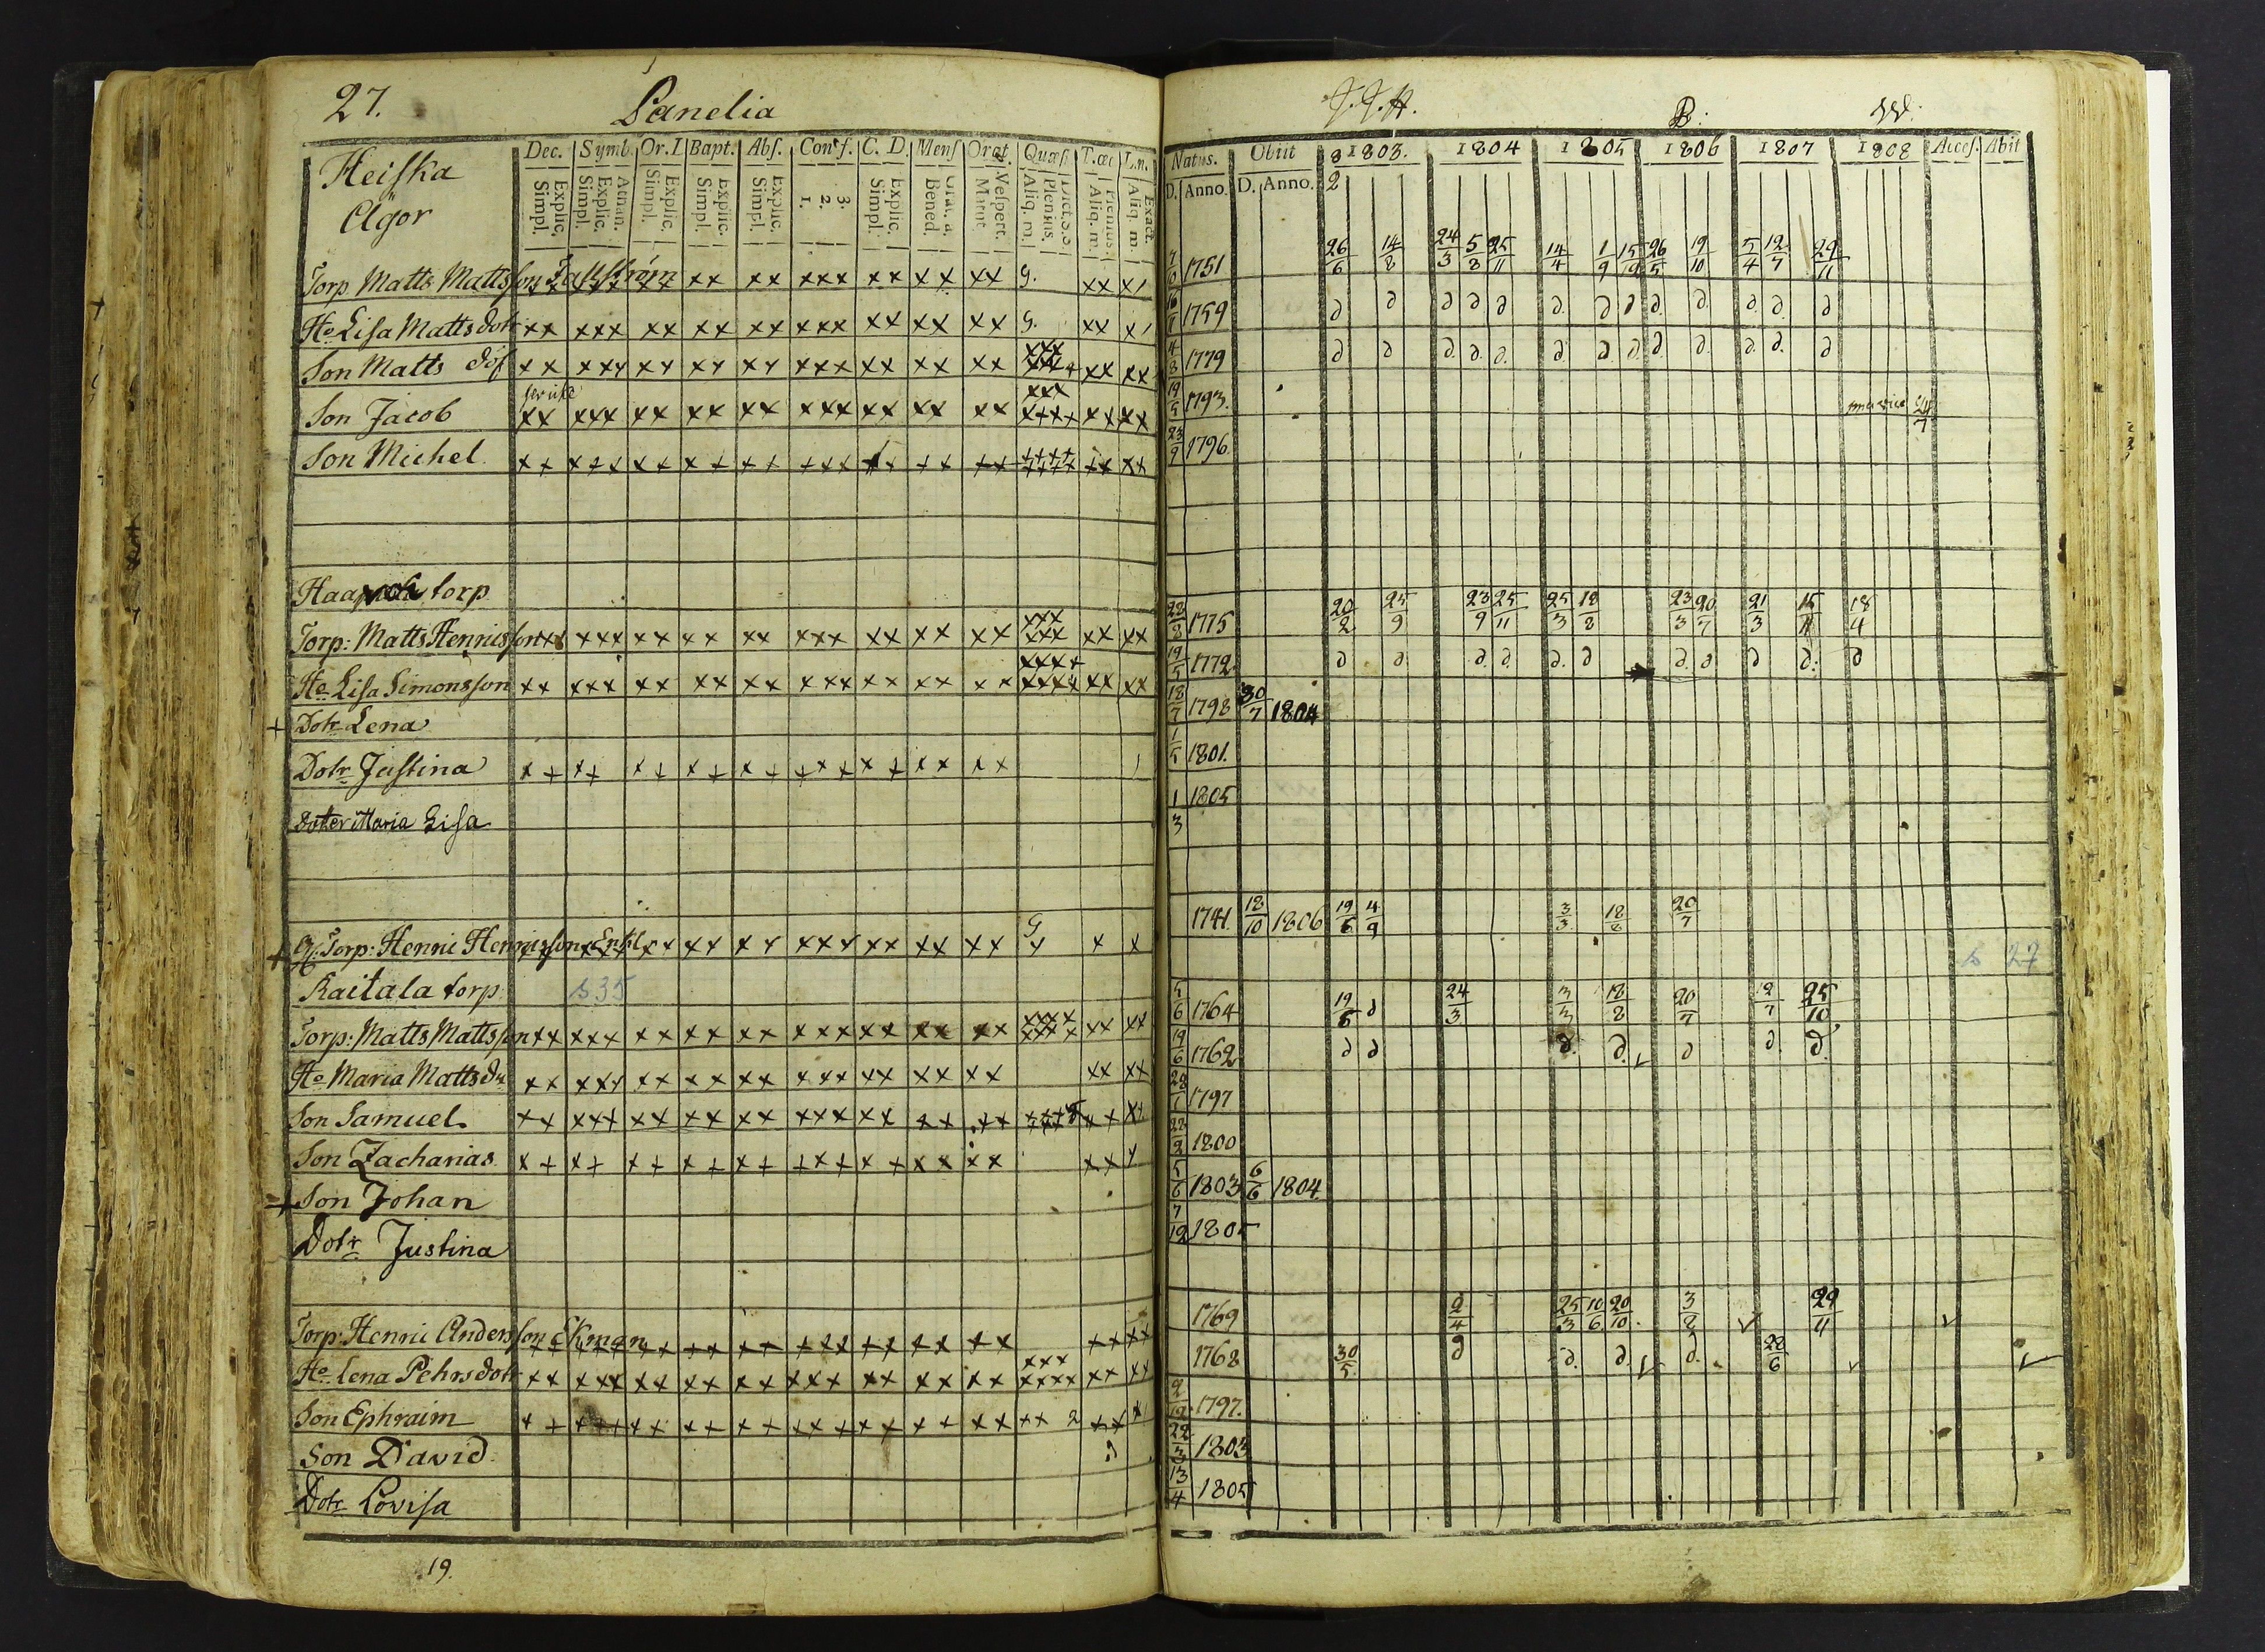 27. Panelia
Heiska
Ägor
Dec. Symb. Or. I. Bapt. Abs. Conf. C. D. Mens Orat. Quæs. T. œc. L. n.
Explic. Simpl. Athan. Explic. Simpl. Explic. Simpl. Explic. Simpl. Explic. Simpl. 3. 2. 1. Explic. Simpl. Grat. a. Bened. Vespert. Matut. Dict. S. S. Plenius. Aliq. m. Plenius. Aliq. m. Exact. Aliq. m.
Torp Matts Mattsson xx xxx xx xx xx xxx xx xx xx g. xx x
He Lisa Matts dotr xx xxx xx xx xx xxx xx xx xx g. xx x
Son Matts xx xxx xx xx xx xxx xx xx xx xxx xx xx
Son Jacob xx xxx xx xx xx xxx xx xx xx xxx xxxx xx xx
Son Michel xx xxx xx xx xx xxx xx xx xx xxxx xx xx
torp
Torp: Matts Henricsson xx xxx xx xx xx xxx xx xx xx xxx xxx xx xx
He Lisa Simonsson xx xxx xx xx xx xxx xx xx xx xxxx xxxx xx xx
+ Dotr Lena
Dotr Justina xx xx xx xx xx xxx xx xx xx
Dotter Maria Lisa
+ Torp: Henric Henricsson Enkl xx xx xx xxx xx xx xx g x x x
Raitala torp s 35
Torp: Matts Mattsson xx xxx xx xx xx xxx xx xx xx xxxx xxxx xx xx
He Maria Matts dr xx xxx xx xx xx xxx xx xx xx xx xx
Son Samuel xx xxx xx xx xx xxx xx xx xx xx xx
Son Zacharias xx xx xx xx xx xxx xx xx xx xx x
+ Son Johan
Dotr Justina
Torp: Henric Andersson Ekman xx xx xx xxx xx xx xx xx xx
He Lena Pehrsdotr xx xxx xx xx xx xxx xx xx xx xxx xxxx xx xx
Son Ephraim xx xxx xx xx xx xxx xx xx xx xx 2 xx x
Son David
Dotr Lovisa
19.
J. J. H. B: W.
Natus. Obiit 1803. 1804 1805 1806 1807 1808 Acces. Abit
D. Anno. D. Anno.
1751 26/6 14/8 24/3 5/8 25/11 14/4 1/9 15/10 26/5 19/10 5/4 12/7 29/11
1759 d d d d d d. d d d d. d. d. d
4/8 1779 d d d. d. d. d. d. d. d. d. d. d. d
19/5 1793. 24/7
23/9 1796
28/8 1775 20/2 25/9 23/9 25/11 25/3 18/8 23/3 20/7 21/3 15/11 18/4
19/5 1772 d d d. d. d. d d. d d d. d
18/7 1798 30/7 1804
1/5 1801.
1/3 1805
1741. 18/10 1806 19/6 4/9 3/3 18/8 20/7
s 27
5/6 1764 19/6 d 24/3 3/3 18/8 20/7 12/7 25/10
19/6 1762 d d d. d. d d. d.
28/1 1797
22/9 1800
5/6 1803 6/6 1804
7/12 1805
1769 2/4 25/3 10/6 20/10 3/8 29/11
1768 30/5 d d. d. d. 28/6
2/12 1797.
22/3 1803
13/4 1805